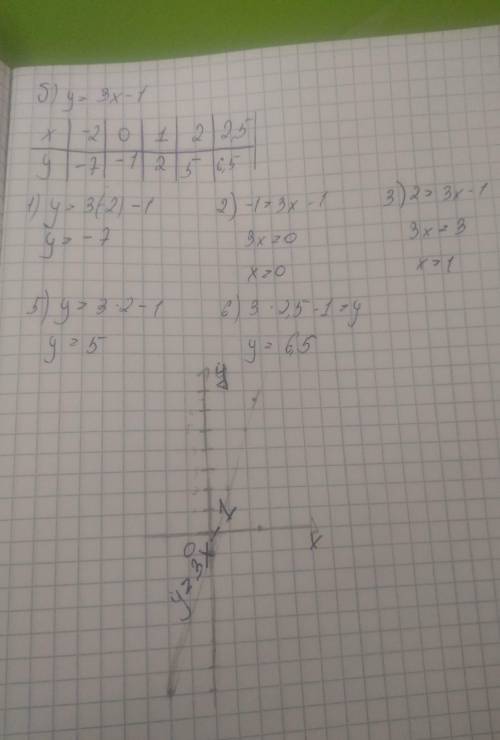 б) y = 3x - 1
x | -2 | 0 | 1 | 2 | 2,5
y | -7 | -1 | 2 | 5 | 6,5
1) y = 3(-2) - 1
y = -7
2) -1 = 3x - 1
3x = 0
x = 0
3) 2 = 3x - 1
3x = 3
x = 1
5) y = 3 · 2 - 1
y = 5
6) 3 · 2,5 - 1 = y
y = 6,5
y
0
x
y = 3x - 1